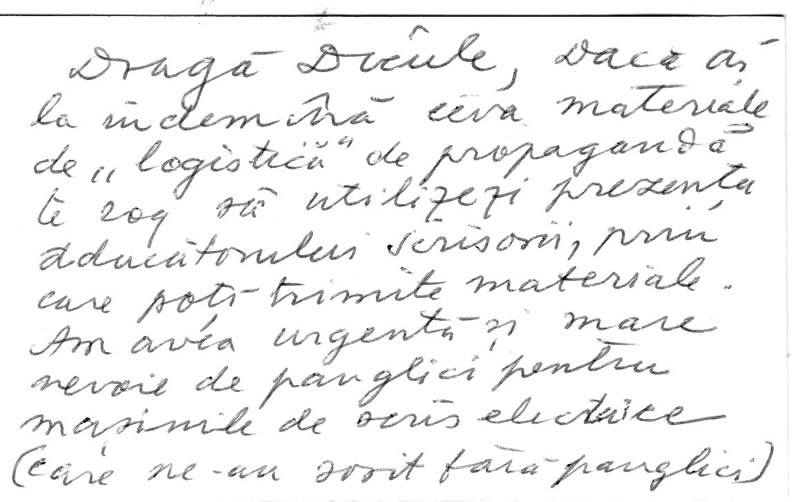 Dragă Dicule, Dacă ai
la indemână ceva materiale
de „logistică" de propagandă
te rog să utilizezi prezența
aducătorului scrisorii, prin
care poți trimite materiale.
Am avea urgentă și mare
nevoie de panglici pentru
mașinile de scris electrice
(care ne-au sosit fără panglici)